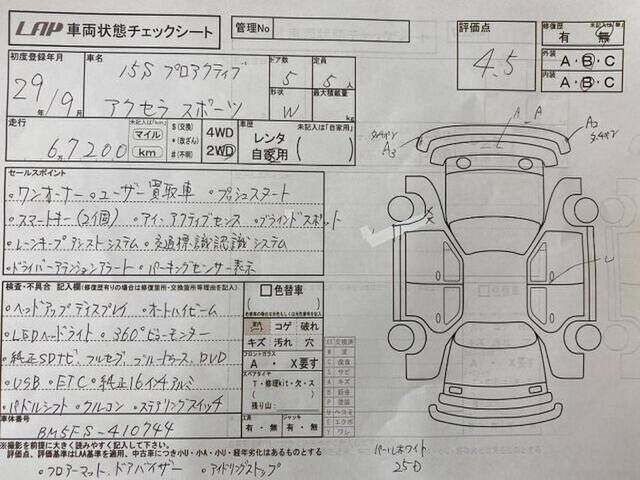 LAP 車両状態チェックシート
管理No
評価点
4.5
修復歴
有 無
外装
A・B・C
内装
A・B・C
初度登録年月
29年/9月
車名
15S プロアクティブ
アクセラ スポーツ
ドア数
5
定員
5人
形状
W
最大積載量
kg
走行
6万7200
未記入は「km」
マイル
km
$(交換)
*(改ざん)
#(不明)
4WD
2WD
車歴
未記入は「自家用」
レンタ
自家用
セールスポイント
・ワンオーナー ・ユーザー買取車 ・プッシュスタート
・スマートキー(2個) ・アイ・アクティブセンス ・ブラインドスポット
・レーンキープアシストシステム ・交通標識認識システム
・ドライバーアテンションアラート ・パーキングセンサー表示
検査・不具合 記入欄(修復歴有りの場合は修復箇所・交換箇所等理由を記入)
・ヘッドアップディスプレイ ・オートハイビーム
・LEDヘッドライト ・360°ビューモニター
・純正SDナビ、フルセグ、ブルートゥース、DVD
・USB ・ETC ・純正16インチアルミ
・パドルシフト ・クルコン ・ステアリングスイッチ
色替車
コゲ 破れ
キズ 汚れ 穴
フロントガラス
A ・ X要す
スペアタイヤ
T・修理kit・欠・ス
残り山:
工具
有・無
ジャッキ
有・無
車体番号
BM5FS-410744
※撮影を前提に大きく読みやすく記入して下さい。
評価点、評価基準はLAA基準を適用、中古車につき小U・小A・小U・経年劣化はあるものとする
・フロアーマット、ドアバイザー ・アイドリングストップ
パールホワイト
25D
A
A
A3
A2
U
X